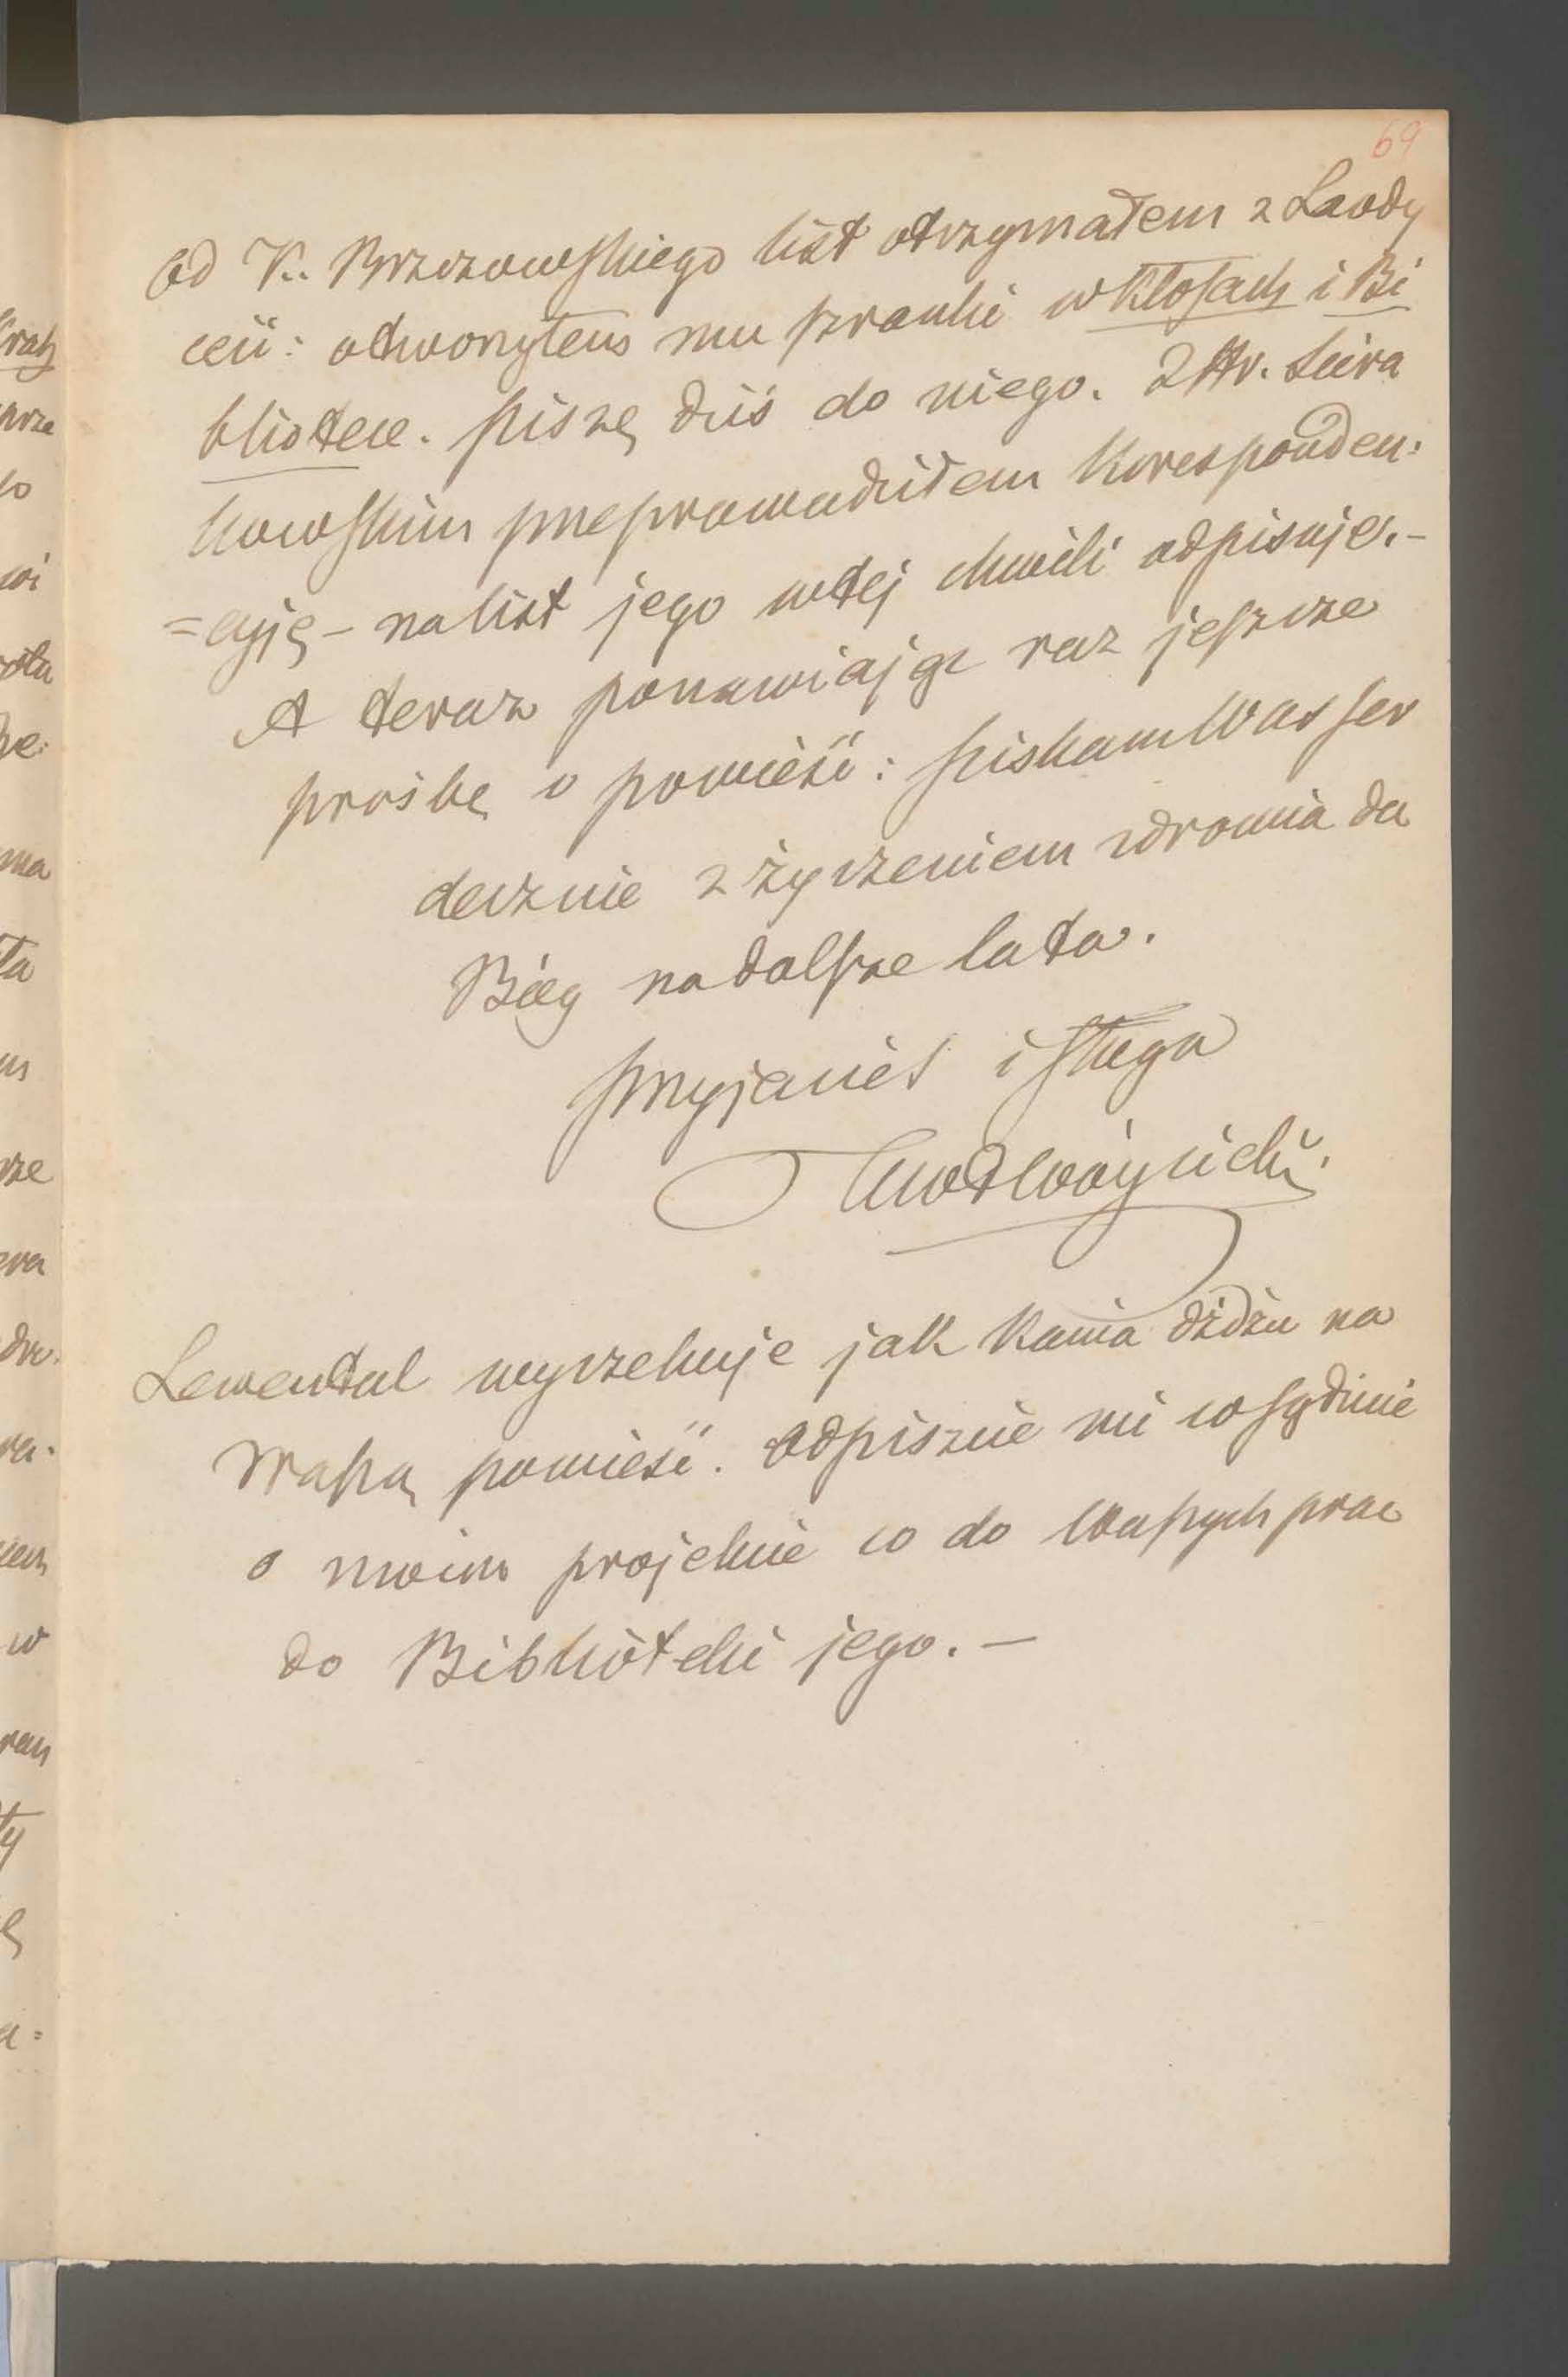 69
od K. Brzozowskiego list otrzymałem z Laody
cei: otworzyłem mu szranki w Kłosach i Bi
bliotece. Piszę dziś do niego. Z Hr. Siera
kowskim przeprowadziłem koresponden:
=cyję – na list jego w tej chwili odpisuje. –
A teraz ponawiając raz jeszcze
prośbę o powieść: ściskam Was ser
decznie z życzeniem zdrowia da
Bóg na dalsze lata.
przyjaciel i sługa
KWł Wójcicki.
Lewental wyczekuje jak kania dżdżu na
Waszą powieść. Odpiszcie mi co sądzicie
o moim projekcie co do Waszych prac
do Biblioteki jego. –